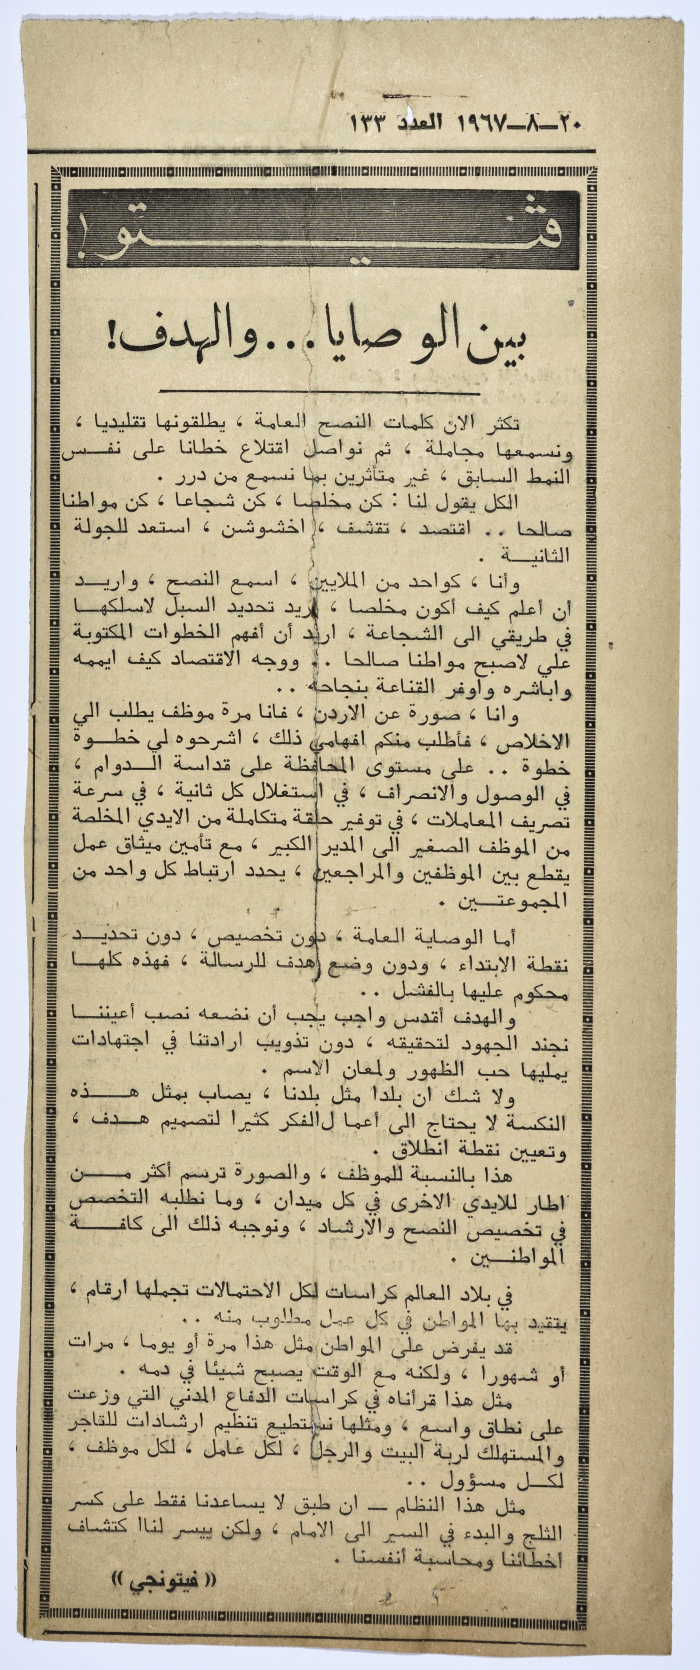 ٢٠-٨-١٩٦٧ العدد ١٣٣
ڤيتو!
بين الوصايا...والهدف!
تكثر الان كلمات النصح العامة ، يطلقونها تقليديا ،
ونسمعها مجاملة ، ثم نواصل اقتلاع خطانا على نفس
النمط السابق ، غير متأثرين بما نسمع من درر .
الكل يقول لنا : كن مخلصا ، كن شجاعا ، كن مواطنا
صالحا .. اقتصد ، تقشف ، اخشوشن ، استعد للجولة
الثانية .
وأنا ، كواحد من الملايين ، اسمع النصح ، واريد
أن أعلم كيف أكون مخلصا ، اريد تحديد السبل لاسلكها
في طريقي الى الشجاعة ، اريد أن أفهم الخطوات المكتوبة
علي لاصبح مواطنا صالحا .. ووجه الاقتصاد كيف ايممه
واباشره واوفر القناعة بنجاحه ..
وانا ، صورة عن الاردن ، فانا مرة موظف يطلب الي
الاخلاص ، فأطلب منكم افهامي ذلك ، اشرحوه لي خطوة
خطوة .. على مستوى المحافظة على قداسة الدوام ،
في الوصول والانصراف ، في استغلال كل ثانية ، في سرعة
تصريف المعاملات ، في توفير حلقة متكاملة من الايدي المخلصة
من الموظف الصغير الى المدير الكبير ، مع تأمين ميثاق عمل
يقطع بين الموظفين والمراجعين ، يحدد ارتباط كل واحد من
المجموعتين .
أما الوصاية العامة ، دون تخصيص ، دون تحديد
نقطة الابتداء ، ودون وضع هدف للرسالة ، فهذه كلها
محكوم عليها بالفشل ..
والهدف أقدس واجب يجب أن نضعه نصب أعيننا
نجند الجهود لتحقيقه ، دون تذويب ارادتنا في اجتهادات
يمليها حب الظهور ولمعان الاسم .
ولا شك ان بلدا مثل بلدنا ، يصاب بمثل هذه
النكسة لا يحتاج الى أعما ل الفكر كثيرا لتصميم هدف ،
وتعيين نقطة انطلاق .
هذا بالنسبة للموظف ، والصورة ترسم أكثر من
اطار للايدي الاخرى في كل ميدان ، وما نطلبه التخصص
في تخصيص النصح والارشاد ، ونوجبه ذلك الى كافة
المواطنين .
في بلاد العالم كراسات لكل الاحتمالات تجملها ارقام ،
يتقيد بها المواطن في كل عمل مطلوب منه ..
قد يفرض على المواطن مثل هذا مرة أو يوما ، مرات
أو شهورا ، ولكنه مع الوقت يصبح شيئا في دمه .
مثل هذا قرأناه في كراسات الدفاع المدني التي وزعت
على نطاق واسع ، ومثلها نستطيع تنظيم ارشادات للتاجر
والمستهلك لربة البيت والرجل ، لكل عامل ، لكل موظف ،
لكل مسؤول ..
مثل هذا النظام — ان طبق لا يساعدنا فقط على كسر
الثلج والبدء في السير الى الامام ، ولكن ييسر لناا كتشاف
أخطائنا ومحاسبة أنفسنا .
(( فيتونجي ))